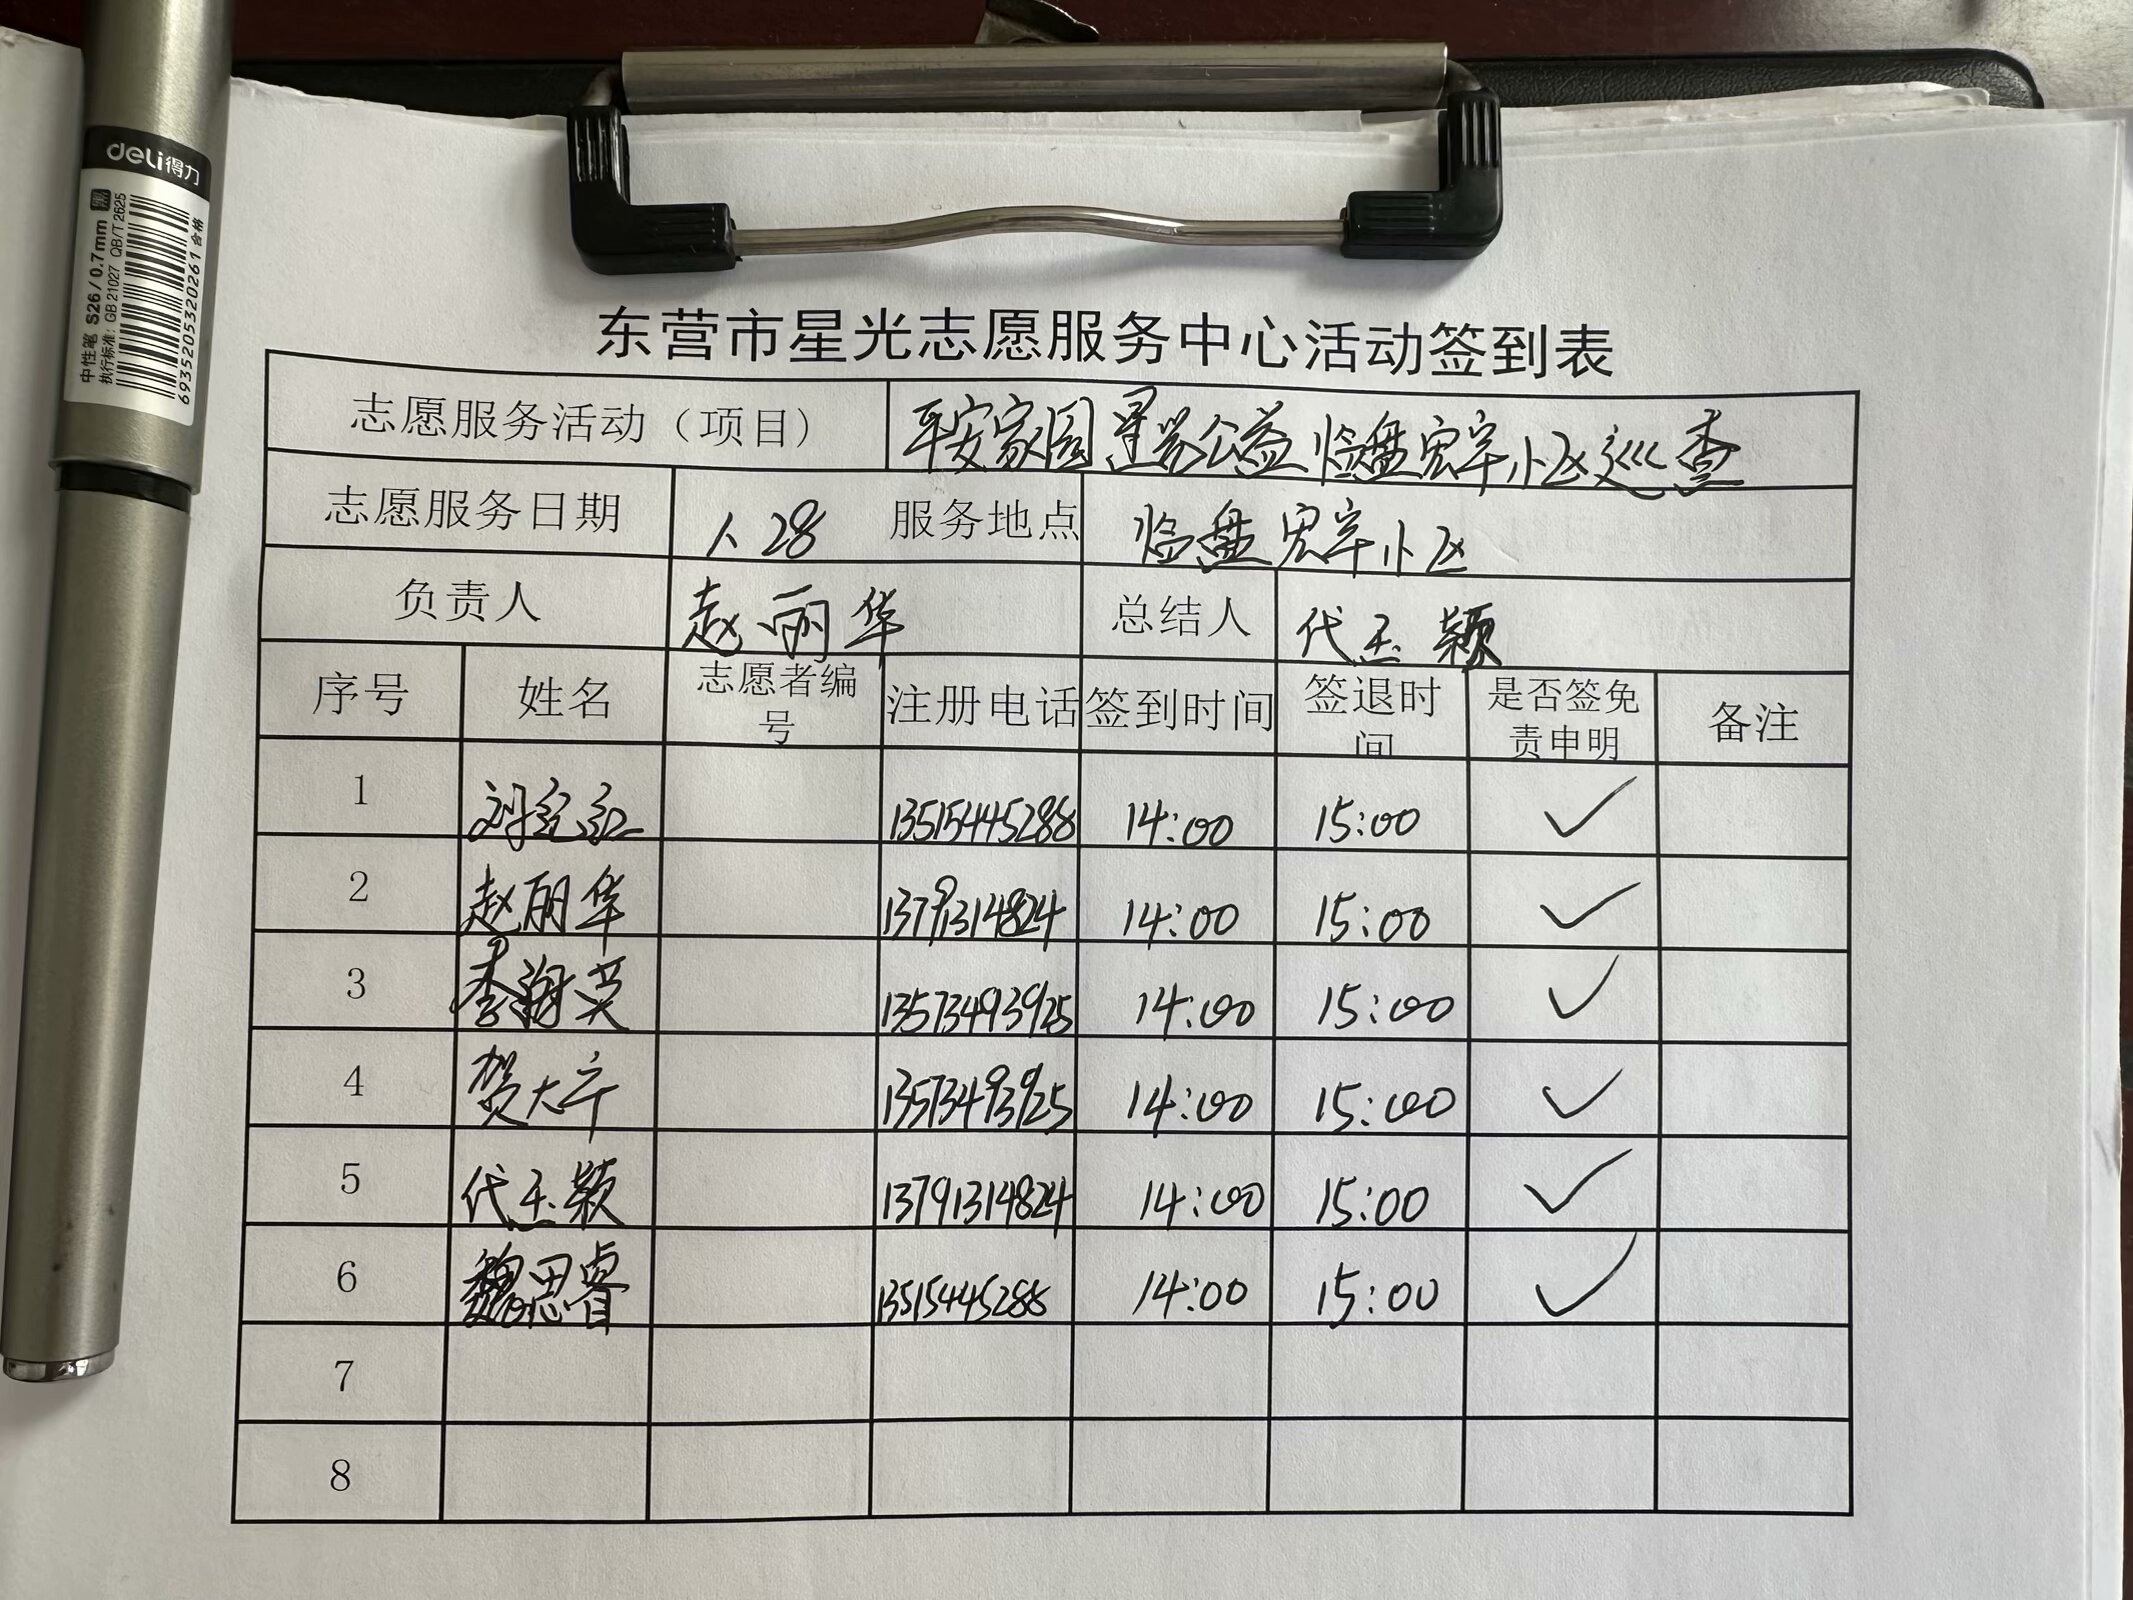 deli得力
中性笔 S26 / 0.7mm 黑
执行标准: GB 21027 QB/T 2625
6935205320261 合格
东营市星光志愿服务中心活动签到表
志愿服务活动（项目） 平安家园 公益 临盘 小区巡查
志愿服务日期 28 服务地点 临盘 小区
负责人 赵丽华 总结人 代玉颖
序号 姓名 志愿者编号 注册电话 签到时间 签退时间 是否签免责申明 备注
1 红 13515445288 14:00 15:00 ✓
2 赵丽华 13791314824 14:00 15:00 ✓
3 李 英 13573493925 14:00 15:00 ✓
4 贺大 13573493925 14:00 15:00 ✓
5 代玉颖 13791314824 14:00 15:00 ✓
6 魏思睿 13515445288 14:00 15:00 ✓
7
8